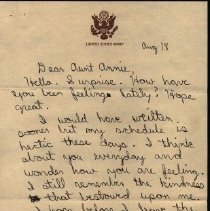 UNITED STATES ARMY
Aug 18
Dear Aunt Annie,
Hello. Surprise. How have
you been feeling lately? Hope
great.
I would have written
sooner but my schedule is
hectic these days. I think
about you everyday and
wonder how you are feeling.
I still remember the kindness
that bestowed upon me.
I hope before I leave the